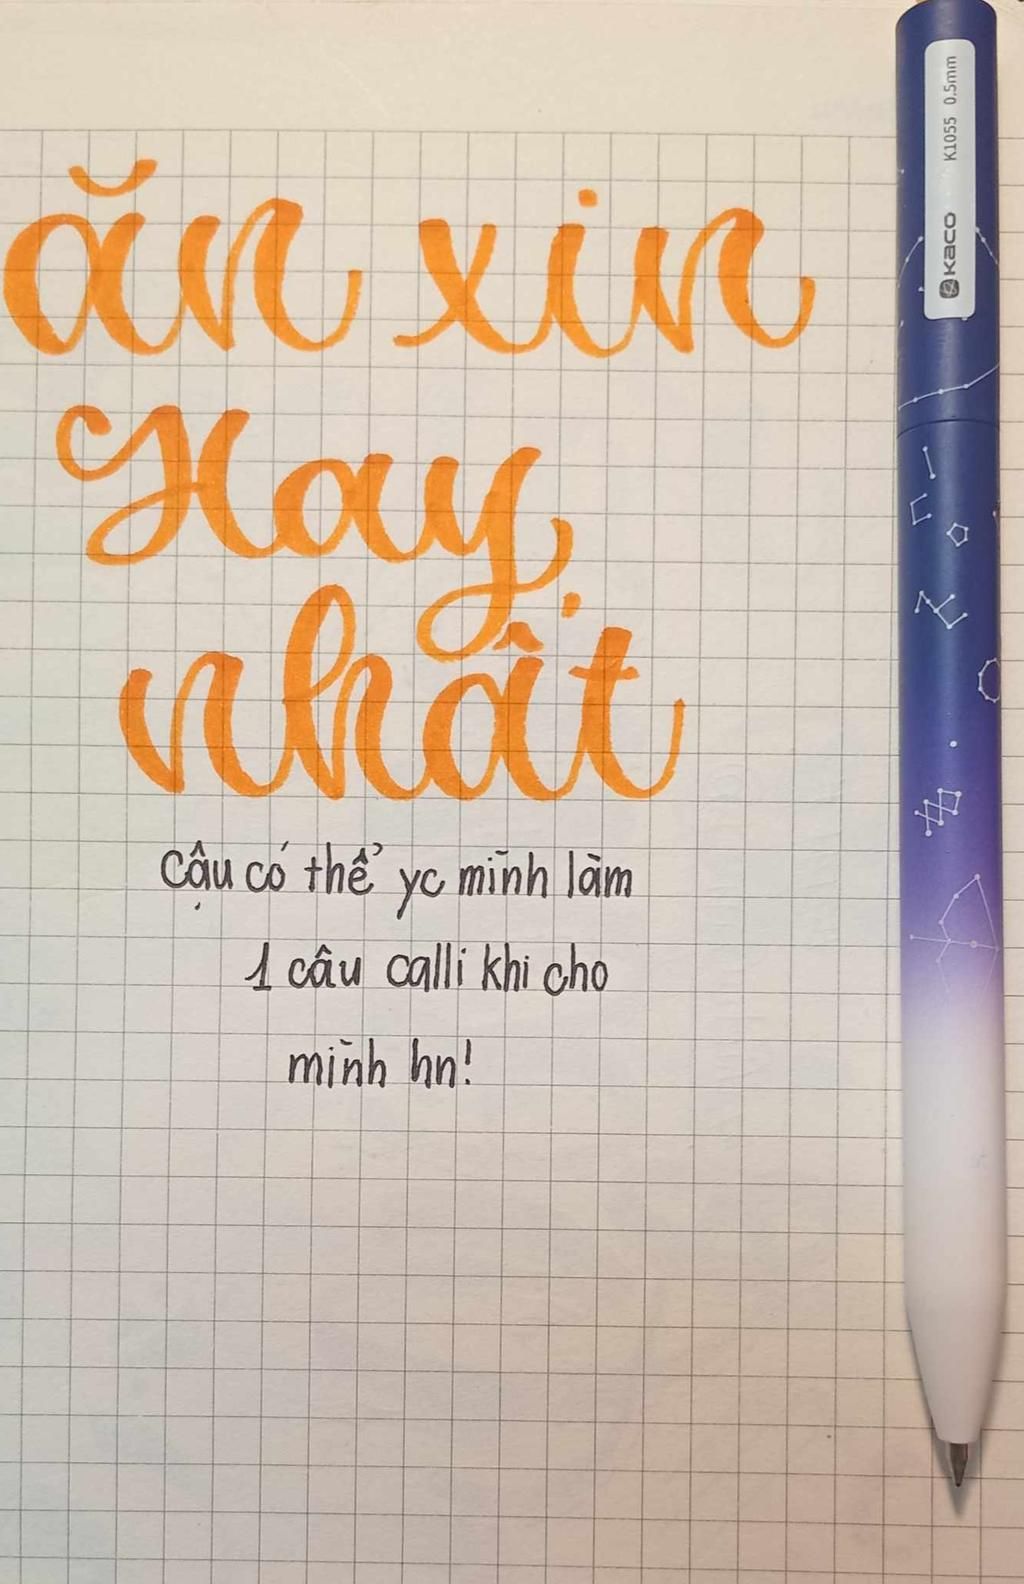 ăn xin
Hay
nhất
Cậu có thể yc mình làm
1 câu calli khi cho
mình hn!
KACO K1055 0.5mm